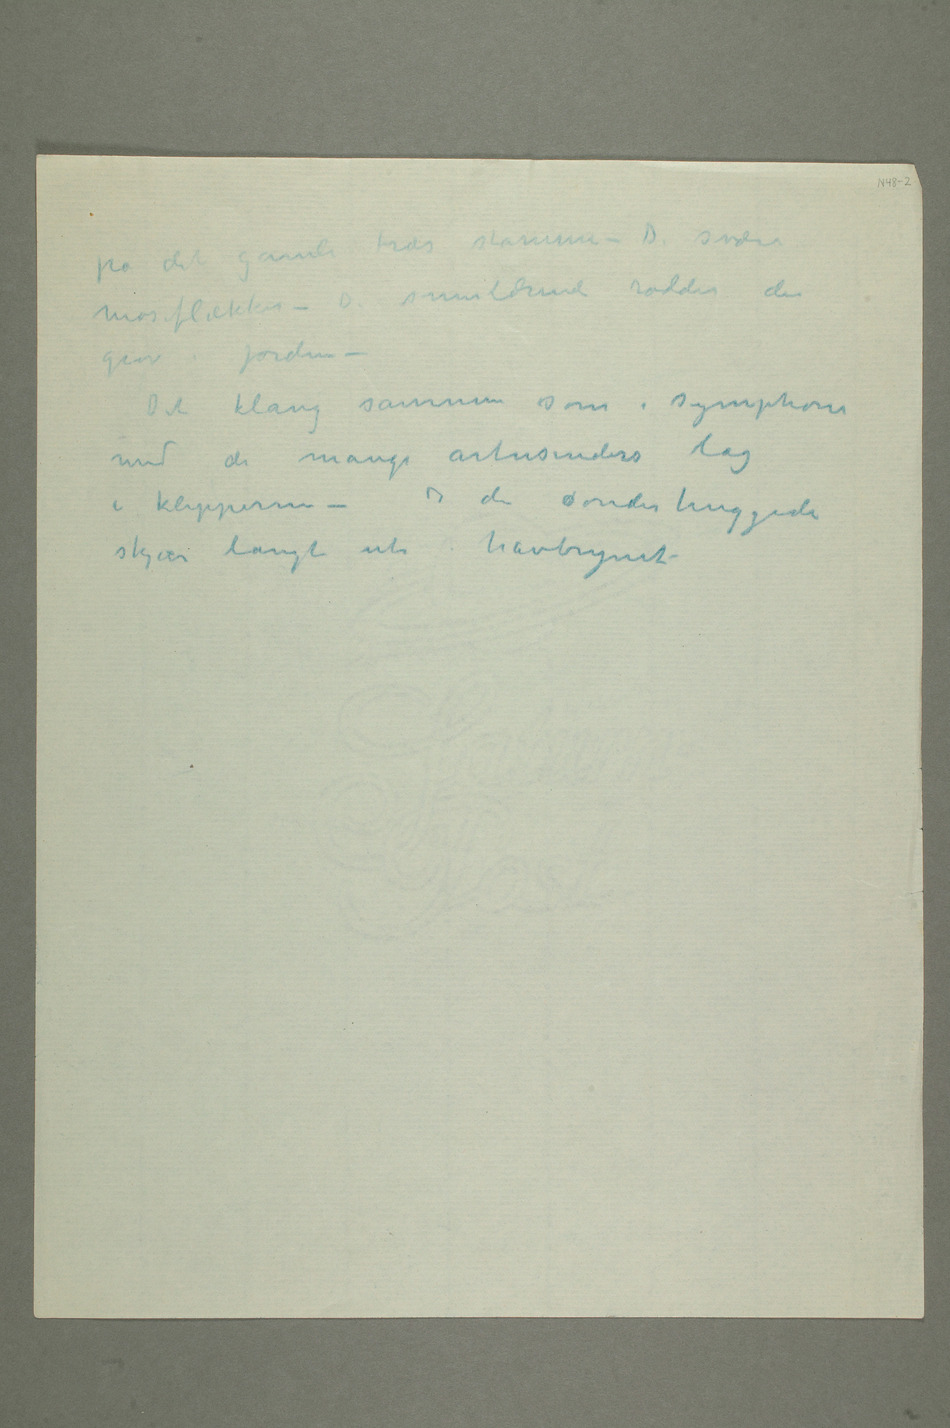 N48-2
på det gamle træs stamme – D. svære
moseflækker – D. smuldrende rødder der
grov i jorden –
Det klang sammen som i symphoni
med de mange artusenders lag
i klipperne – I de sønderhuggede
skjær langt ute i havbrynet